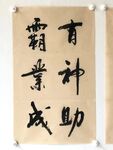 有神助
霸業成